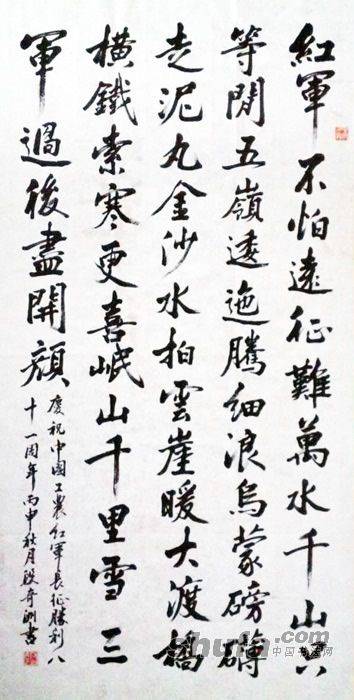 紅軍不怕遠征難萬水千山只
等閑五嶺逶迤騰細浪烏蒙磅礴
走泥丸金沙水拍雲崖暖大渡橋
橫鐵索寒更喜岷山千里雪三
軍過後盡開顏
慶祝中國工農紅軍長征勝利八
十一周年丙申秋月